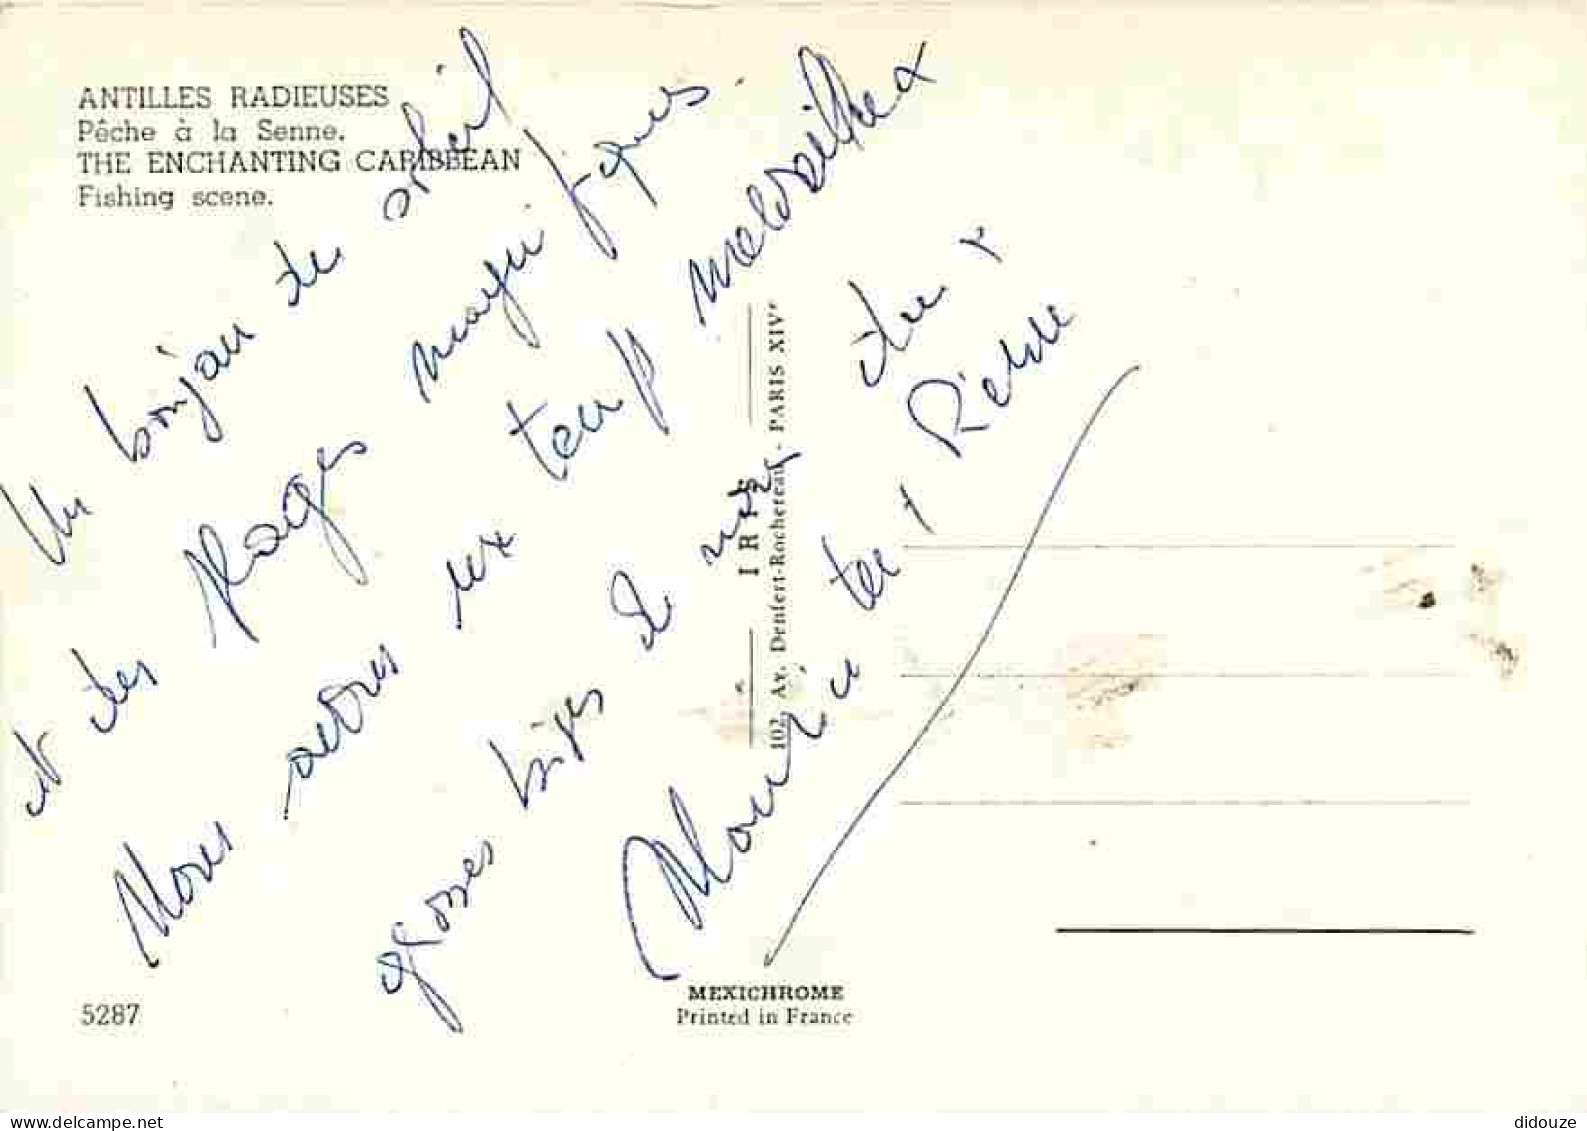 ANTILLES RADIEUSES
Pêche à la Senne.
THE ENCHANTING CARIBBEAN
Fishing scene.
Un bonjour du soleil
et des plages magnifiques.
Nous avons eu temps merveilleux
grosses bises de nous deux
Pierre
IRIS
102, Av. Denfert-Rochereau - PARIS XIVe
5287
MEXICHROME
Printed in France
didouze